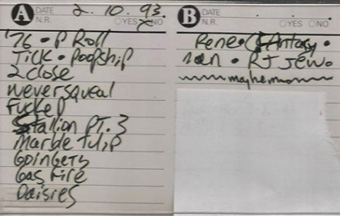 A DATE 2.10.93
N.R. YES NO
'76 • P Roll
Tick • Poopship
2 close
never squeal
Fucked
Stallion PT. 3
Marble tulip
Goin Gets
Gas Fire
Daisies
B DATE
N.R. YES NO
Rene •
• RT Jewo
mayhem